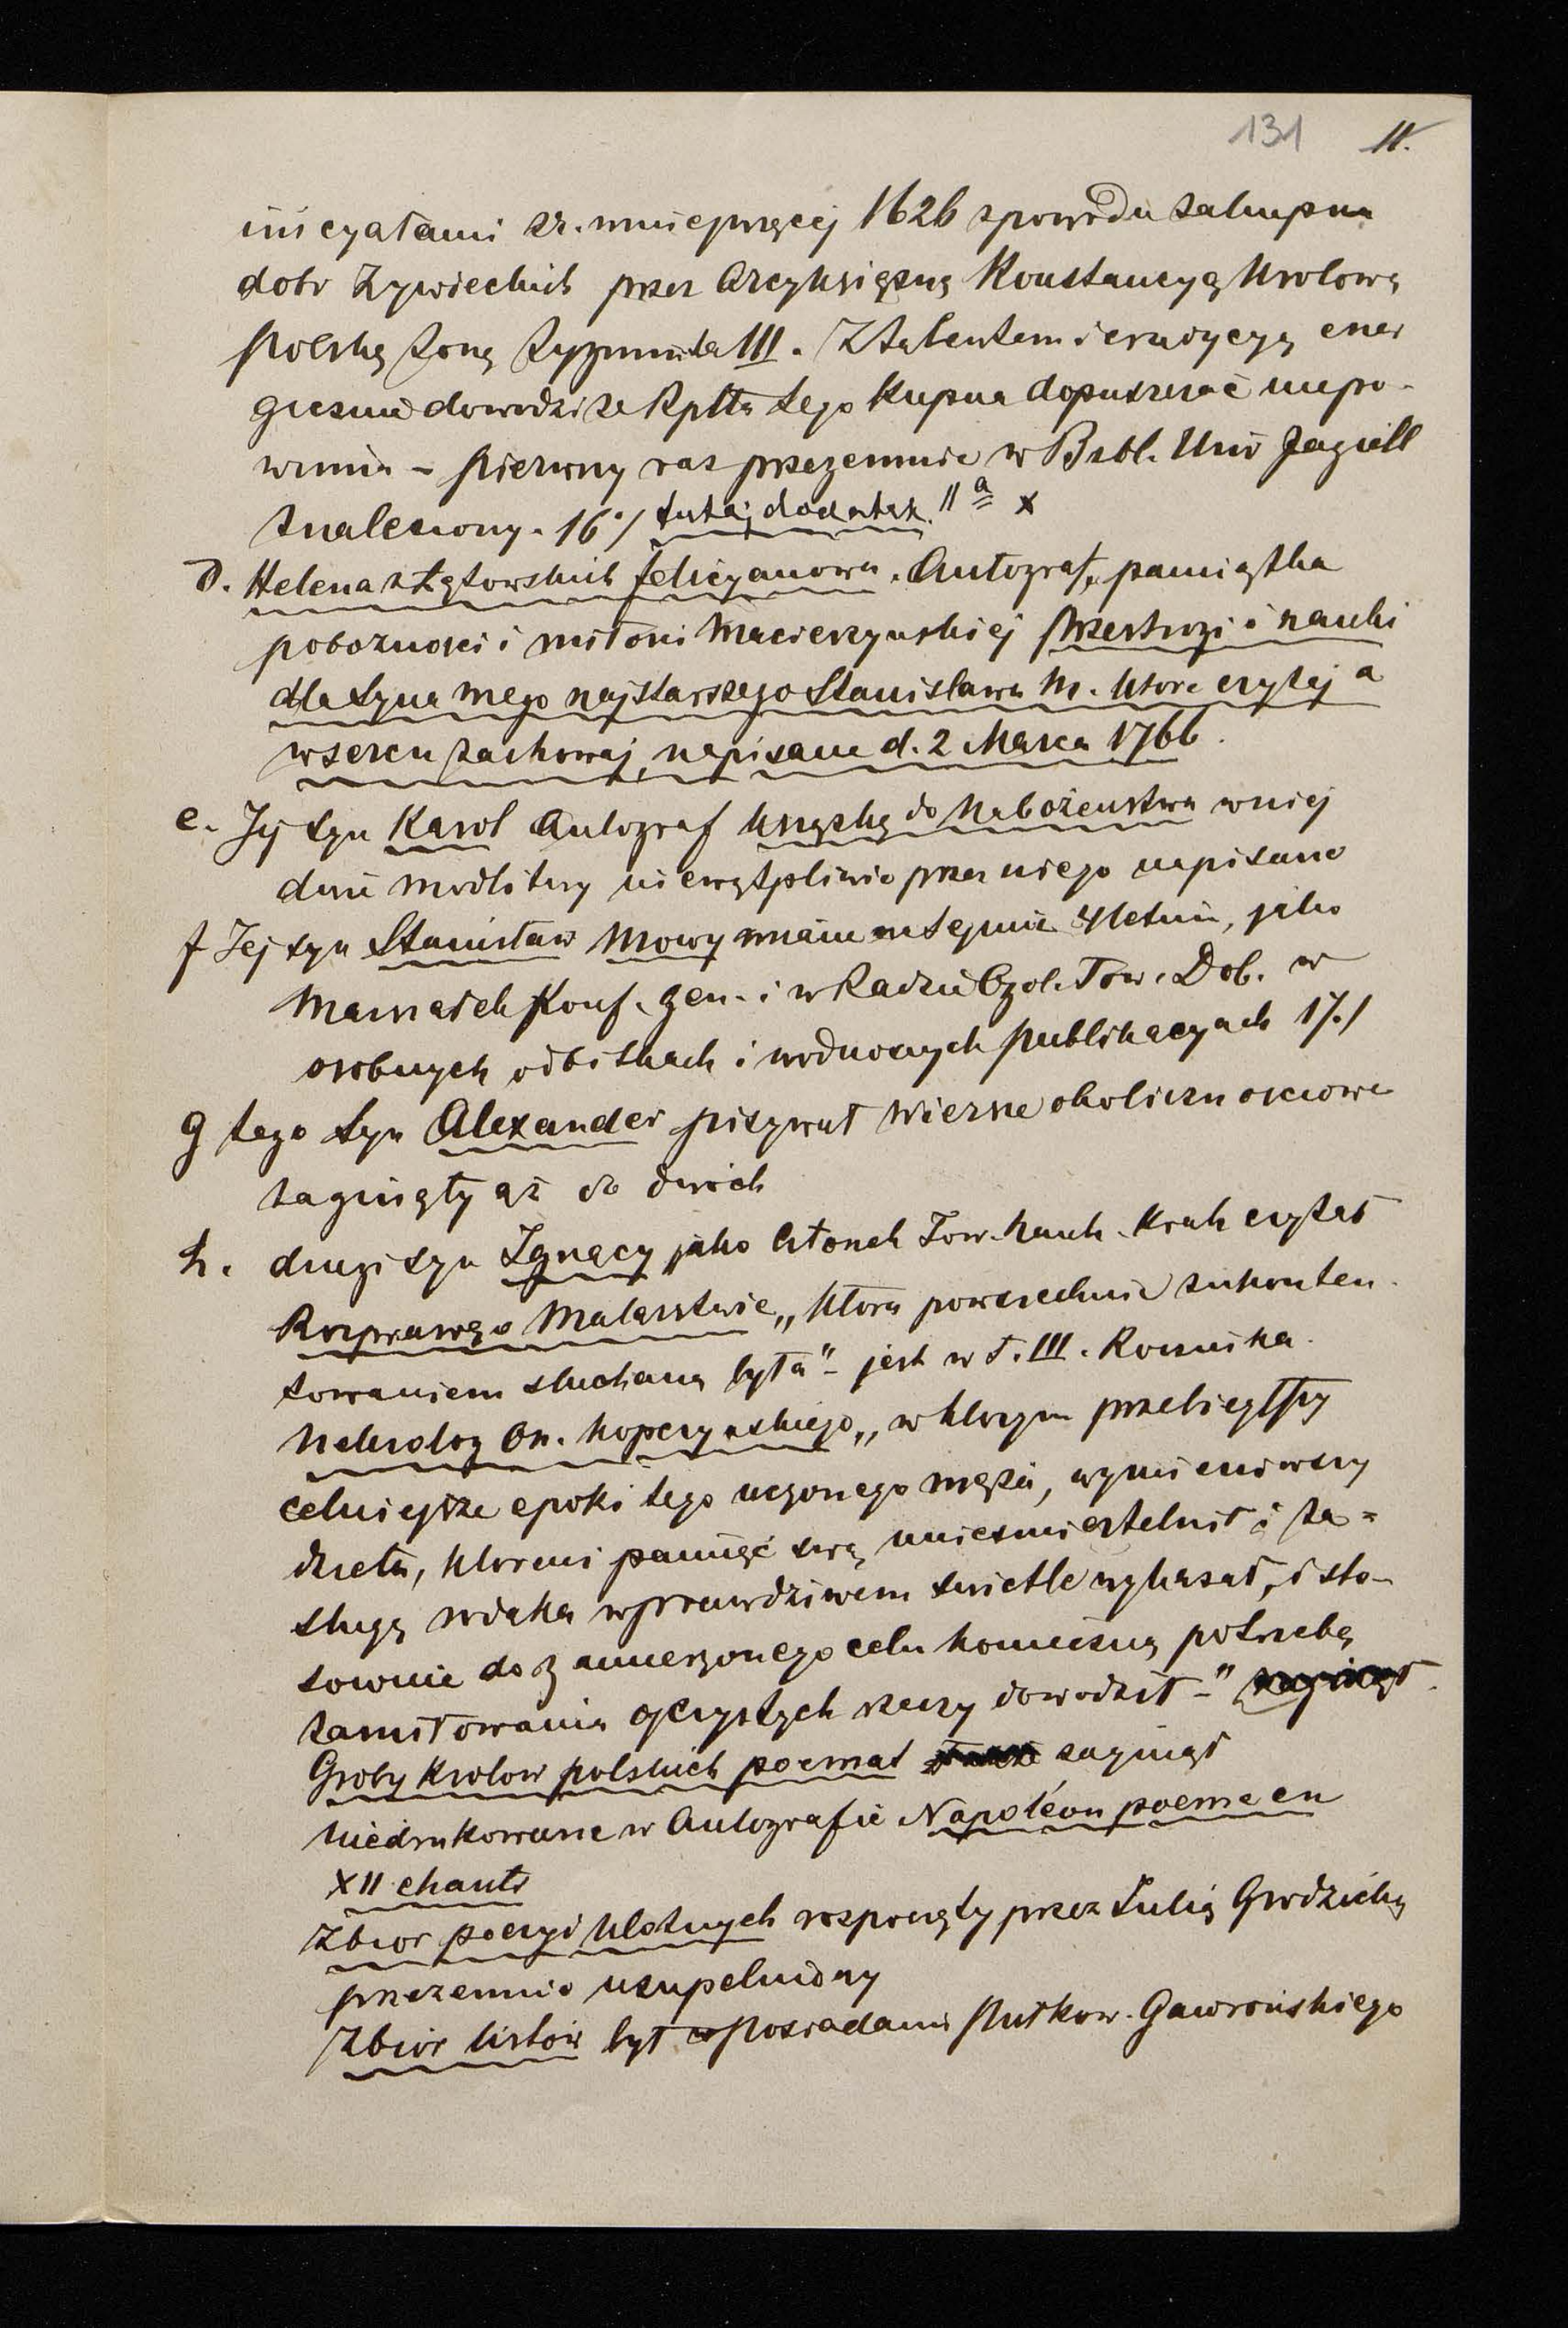 131 11.
inicyałami zr. mniejwięcej 1626 zpowodu zakupna
dobr Zywieckich przez Arcyksiężnę Konstancyą Krolową
Polską żoną Zygmunta III. Z talentem i erudycyą ener
gicznie dowodzi że Rplta tego kupna dopuszczać niepo-
winna – pierwszy raz przezemnie w Bibl. Uniw Jagiell
znaleziony. 16./ tutaj dodatek. 11a x
d. Helena z Łętowskich Felicyanowa. Autograf, pamiątka
pobozności i miłości Macierzynskiej Przestrogi i nauki
dla Syna mego najstarszego Stanisława M. ktore czytaj a
w sercu zachowaj, napisane d. 2 Marca 1766.
e. Jej syn Karol Autograf książką do Nabożeństwa w niej
dwie modlitwy niewątpliwie przez niego napisane
f Jej syn Stanisław Mowy miane na Sejmie 4letnim, jako
Marszałek Konf. gen. i w Radzie Ogol. Tow. Dob. w
osobnych odbitkach i wodnosnych publikacyach 17./
g tego syn Alexander pisywał wiersze okolicznosciowe
zaginęły aż do dwóch
h. drugi syn Ignacy jako Członek Tow. Nauk. Krak czytał
Rozprawę o Malarstwie „ktora powszechnie zukonten
towaniem słuchaną była” – jest w T. III. Rocznika.
Nekrolog On. Kopczynskiego „w ktorym przebiegłszy
celniejsze epoki tego uczonego męża, wymieniwszy
dzieła, ktoremi pamięć swą unieśmiertelnił i za=
sługę rodaka w prawdziwem swietle wykazał, i sto-
sownie do zamierzonego celu konieczną potrzebę
zamiłowania ojczystych rzeczy dowodził –”
Groby Krolow polskich poemat zaginął
Niedrukowane w Autografie Napoléon poeme en
XII chants
Zbior poezyi Ulotnych rozpoczęty przez Julią Grodzicką
przezemnie uzupelniony
Zbiór listów był w posiadaniu Pułkow. Gawrońskiego